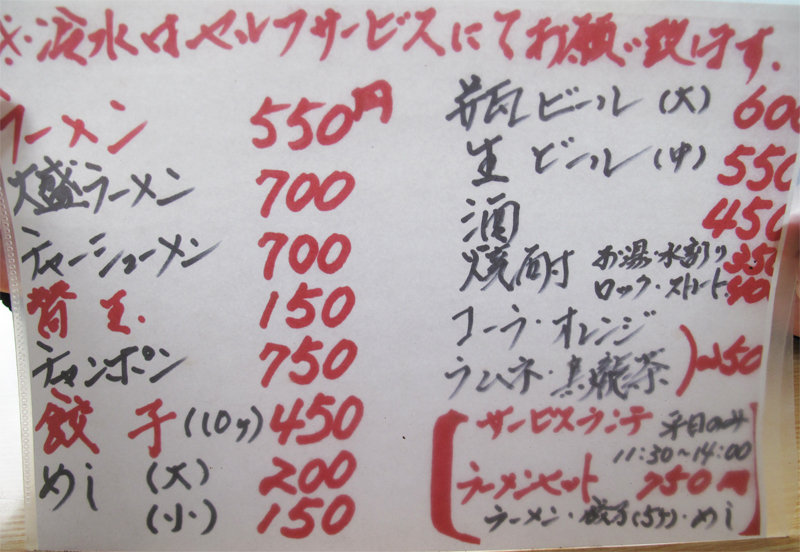 ※冷水はセルフサービスにてお願い致します.
ラーメン 550円
大盛ラーメン 700
チャーシューメン 700
替玉. 150
チャンポン 750
餃子(10ヶ) 450
めし (大) 200
(小) 150
瓶ビール(大) 600
生ビール(中) 550
酒 450
焼酎 お湯・水割り 350
ロック・ストレート 400
コーラ・オレンジ
ラムネ・烏龍茶 )
サービスランチ 平日のみ
11:30~14:00
ラーメンセット 750円
ラーメン・餃子(5ヶ)・めし